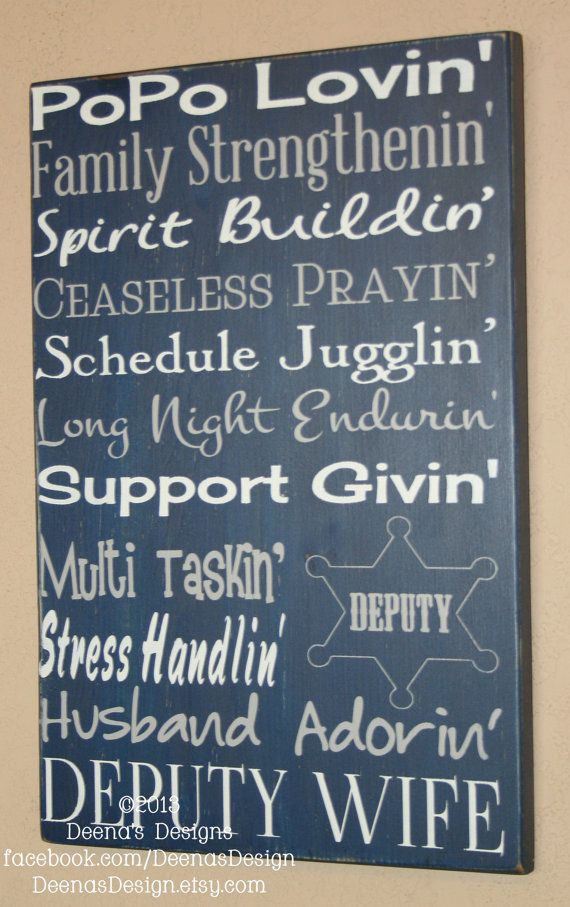 PoPo Lovin'
Family Strengthenin'
Spirit Buildin'
Ceaseless Prayin'
Schedule Jugglin'
Long Night Endurin'
Support Givin'
Multi Taskin'
DEPUTY
Stress Handlin'
Husband Adorin'
DEPUTY WIFE
©2013
Deena's Designs
facebook.com/DeenasDesign
DeenasDesign.etsy.com